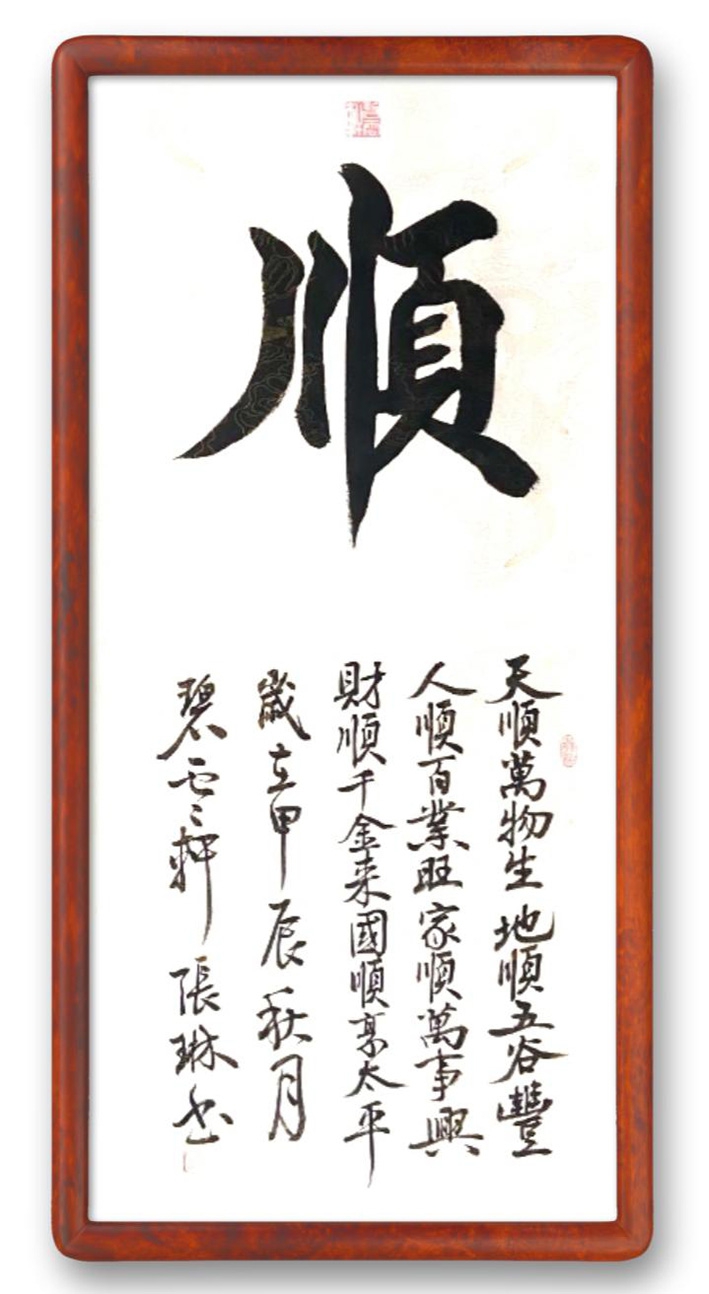 順
天順萬物生地順五谷豐
人順百業旺家順萬事興
財順千金来國順享太平
歲在甲辰秋月
碧雲軒張琳书